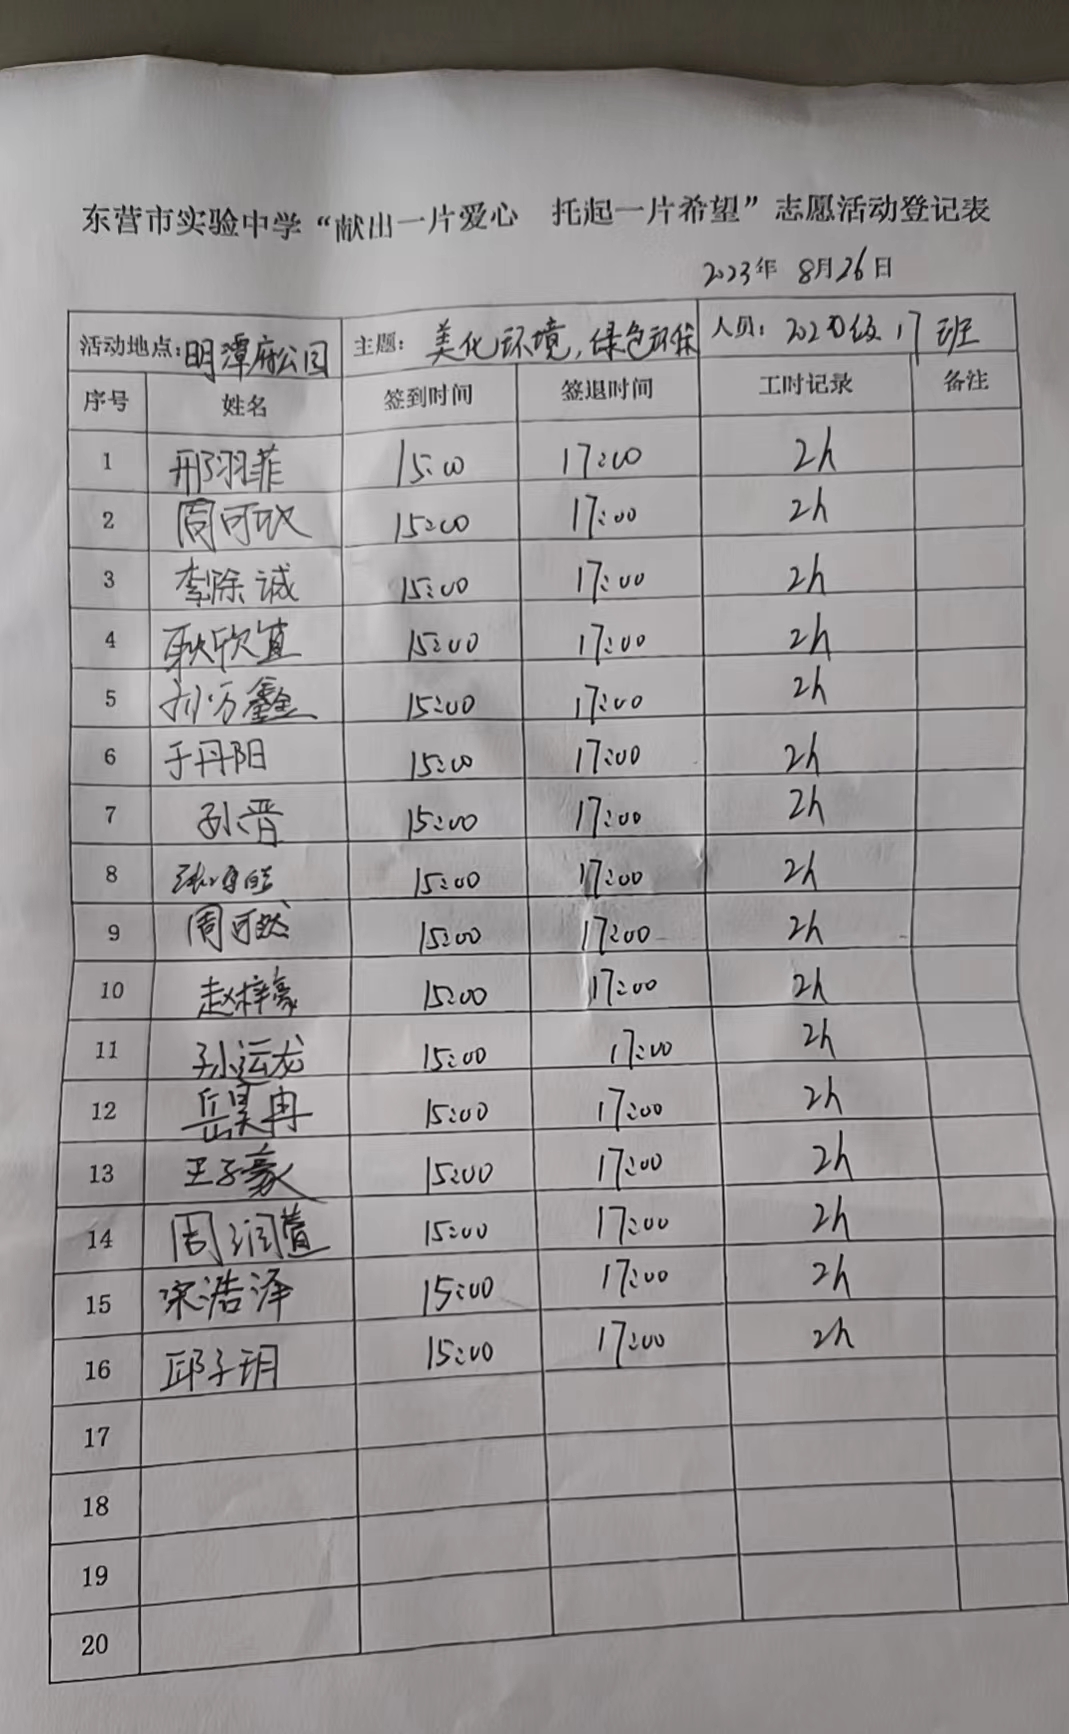 东营市实验中学“献出一片爱心 托起一片希望”志愿活动登记表
2023年 8月26日
活动地点:明潭府公园 主题: 美化环境,绿色环保 人员: 级17班
序号 姓名 签到时间 签退时间 工时记录 备注
1 邢羽菲 15:00 17:00 2h
2 周可欣 15:00 17:00 2h
3 李除诚 15:00 17:00 2h
4 耿欣宜 15:00 17:00 2h
5 鑫 15:00 17:00 2h
6 于丹阳 15:00 17:00 2h
7 孙晋 15:00 17:00 2h
8 15:00 17:00 2h
9 周可然 15:00 17:00 2h
10 赵梓豪 15:00 17:00 2h
11 孙运龙 15:00 17:00 2h
12 岳昊冉 15:00 17:00 2h
13 王子豪 15:00 17:00 2h
14 周润萱 15:00 17:00 2h
15 宋浩泽 15:00 17:00 2h
16 邱子玥 15:00 17:00 2h
17
18
19
20